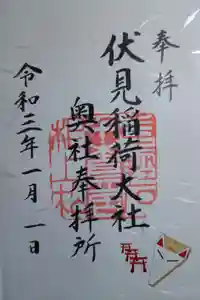 奉拝
伏見稲荷大社
奥社奉拝所
令和三年一月一日